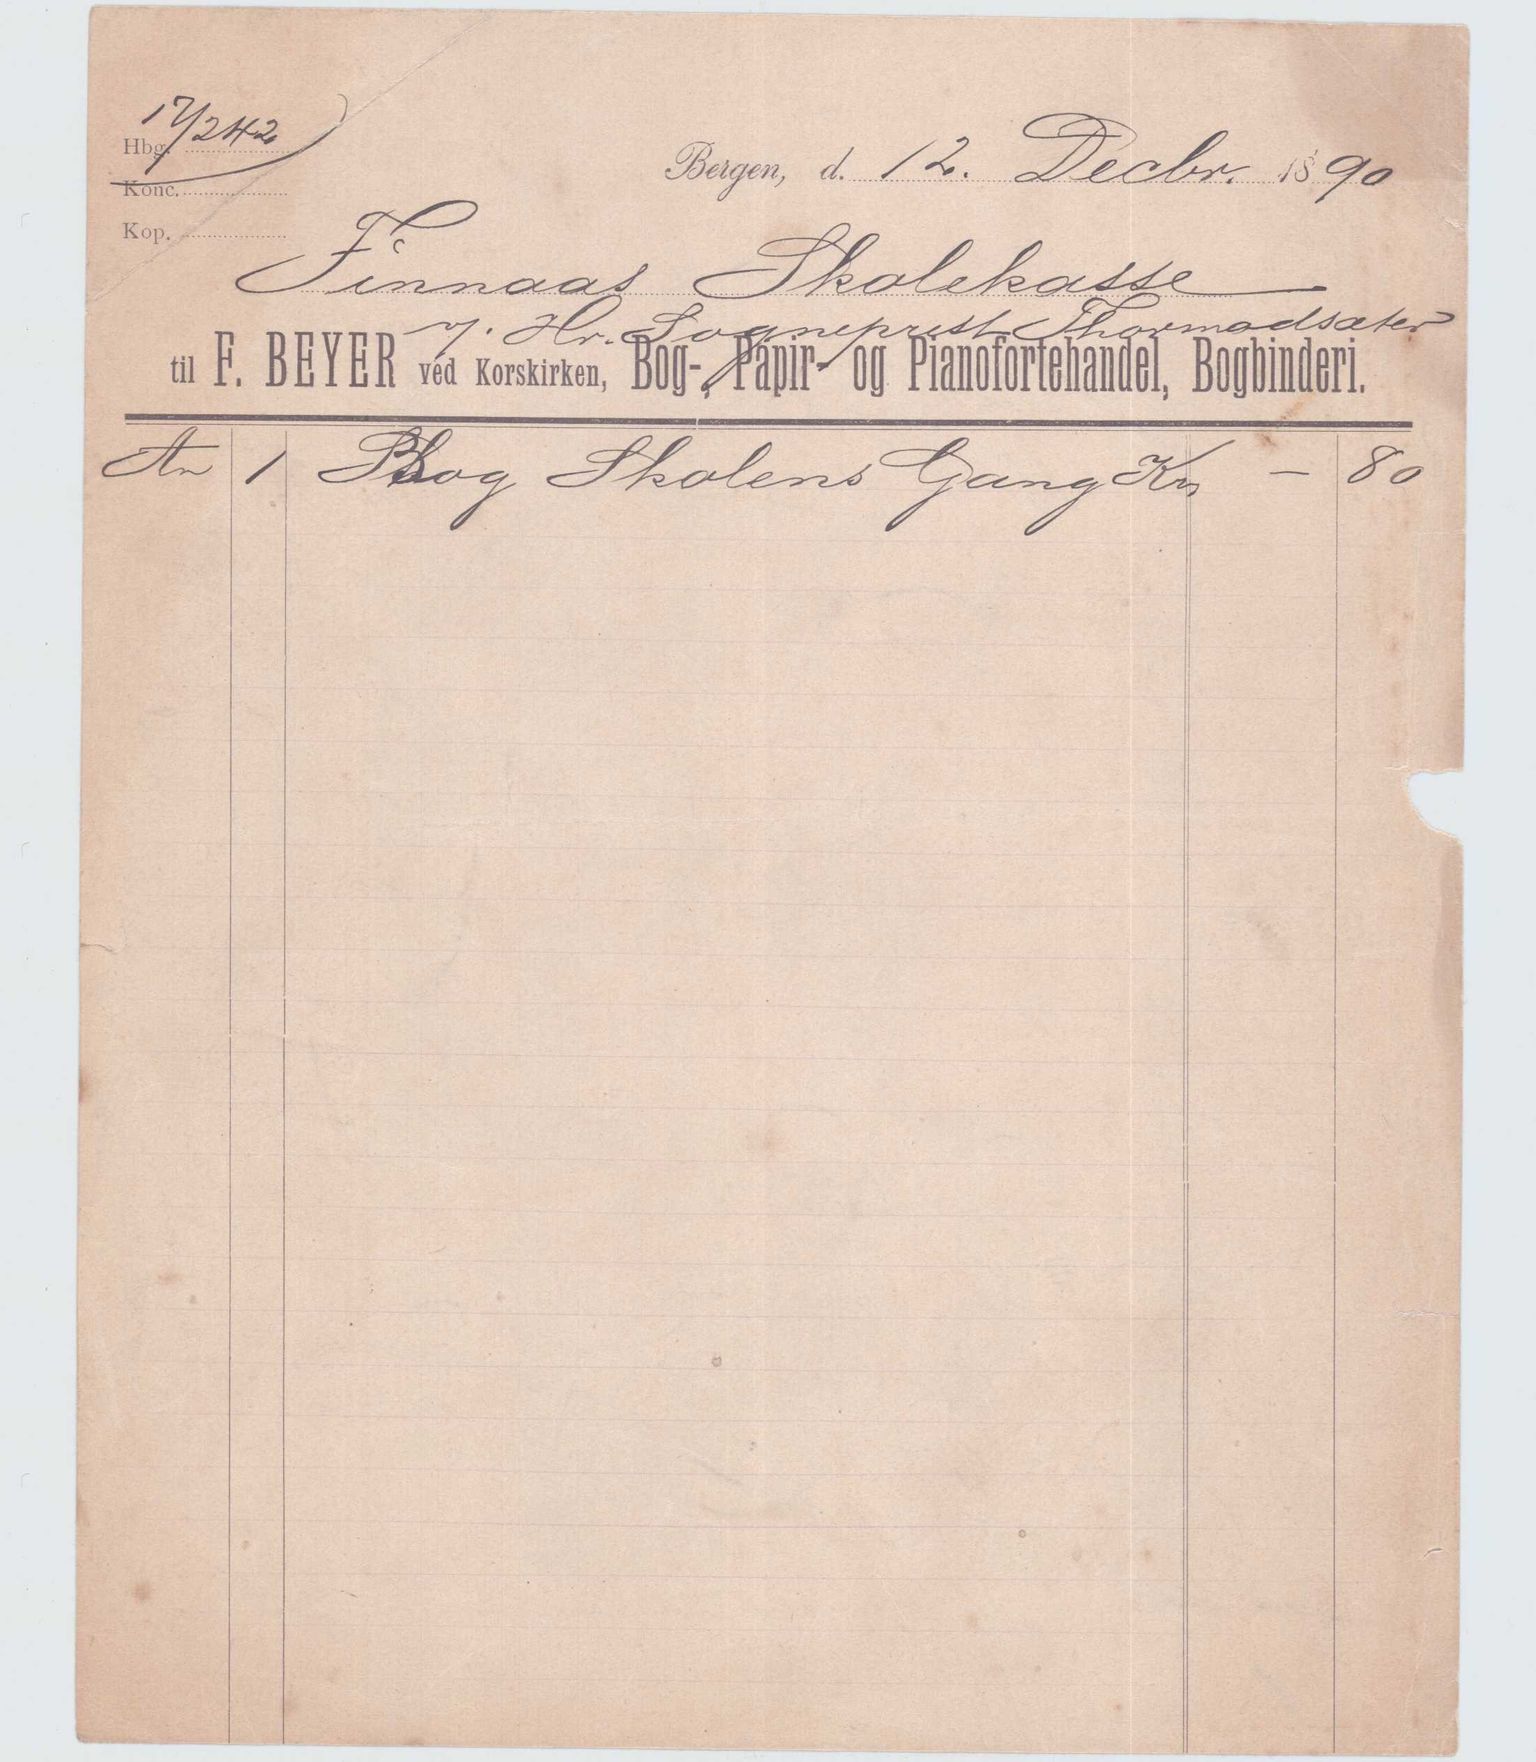 Hbg. 17/242
Konc.
Kop.
Bergen, d. 12. Decbr. 1890
Finnaas Skolekasse
v/. Hr. Sogneprest Thormodsæter
til F. BEYER ved Korskirken, Bog-, Papir- og Pianofortehandel, Bogbinderi.
An 1 Bog Skolens Gang Kr - 80